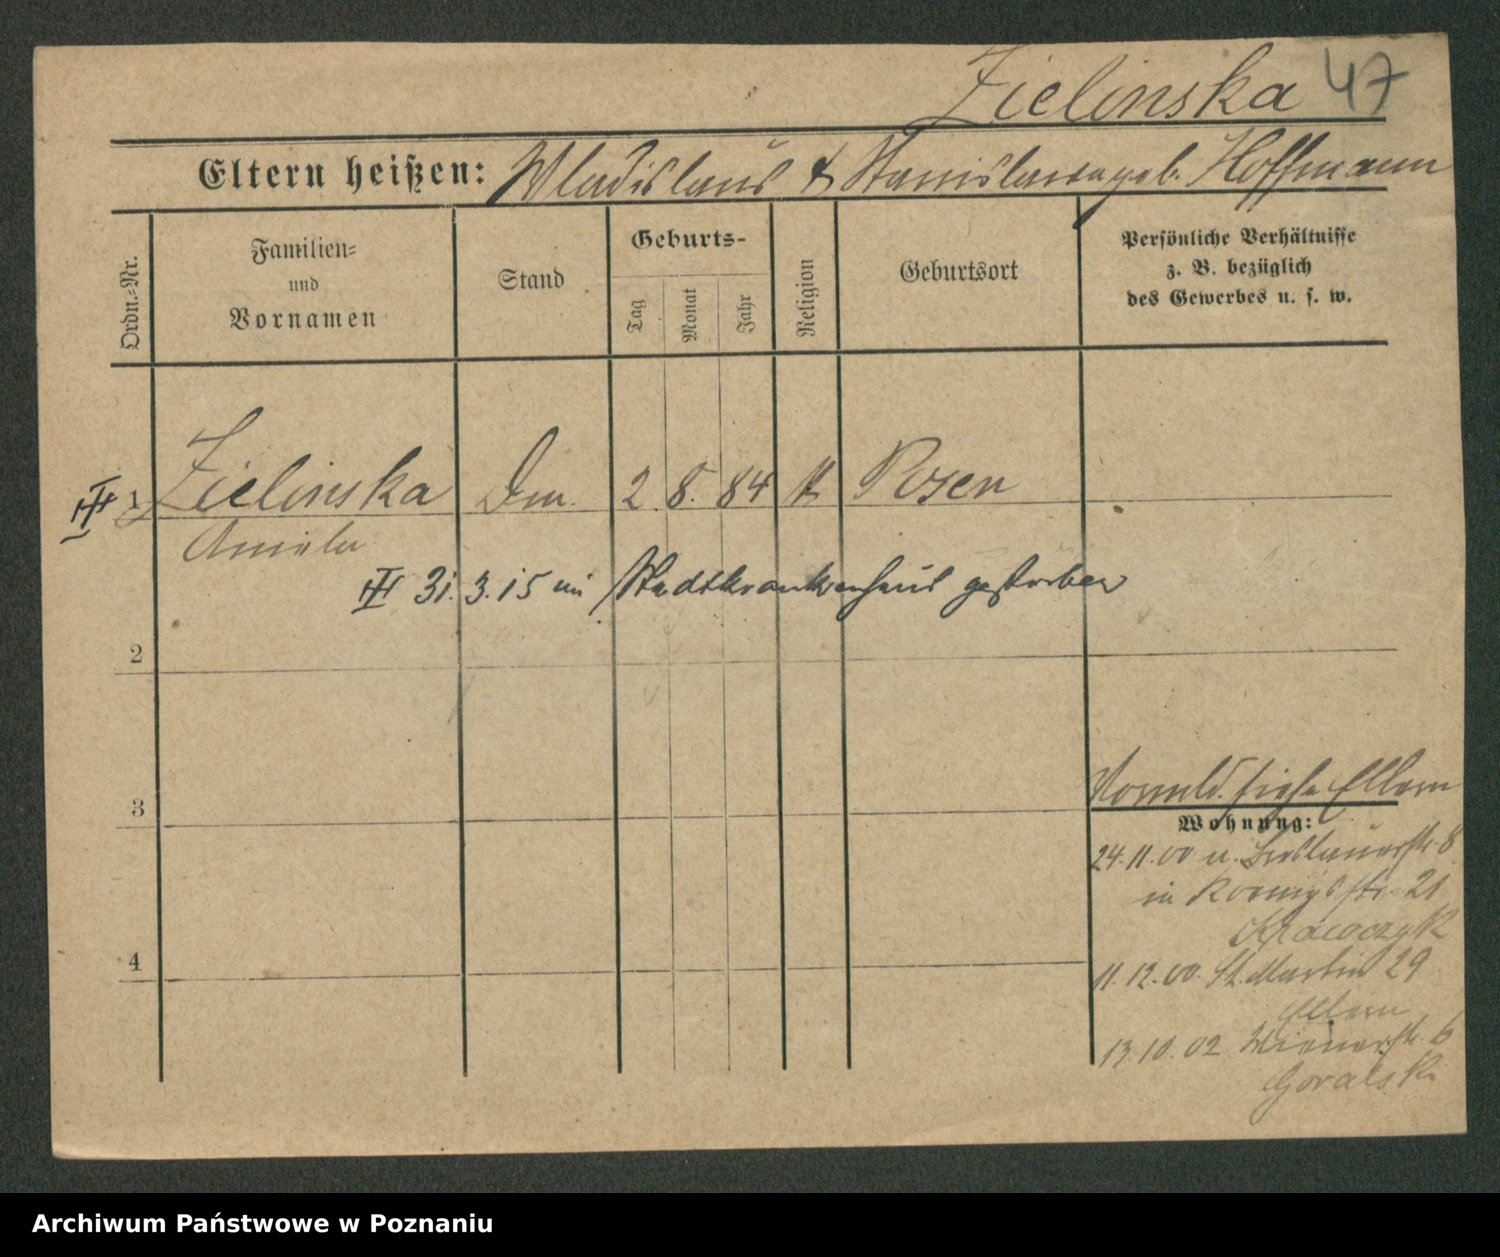 Zielinska 47
Eltern heißen: Wladislaus & Stanislawa geb. Hoffmann
Ordn.-Nr.
Familien-
und
Vornamen
Stand
Geburts-
Tag
Monat
Jahr
Religion
Geburtsort
Persönliche Verhältnisse
z. B. bezüglich
des Gewerbes u. s. w.
1 Zielinska 2 8. 84 k Posen
Aniela
31. 3. 15 im Stadtkrankenhaus gestorben
2
3
siehe Eltern
Wohnung:
24. 11. 00 8
in Koenigsstr. 21
4
11. 12. 00. St. Martin 29
Eltern
13. 10. 02 Wienerstr. 6
Goralski
Archiwum Państwowe w Poznaniu